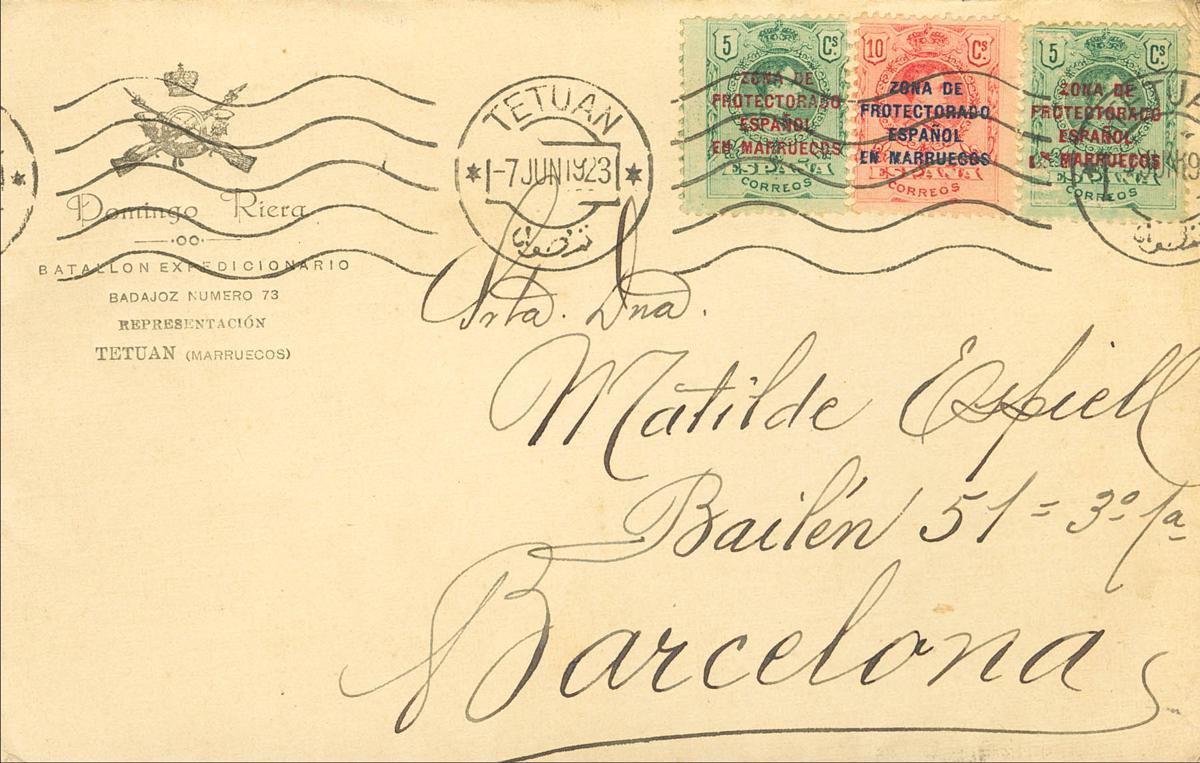 Domingo Riera
BATALLON EXPEDICIONARIO
BADAJOZ NUMERO 73
REPRESENTACIÓN
TETUAN (MARRUECOS)
TETUAN
-7 JUN 1923
تطوان
5 Cs
ZONA DE
PROTECTORADO
ESPAÑOL
EN MARRUECOS
ESPAÑA
CORREOS
10 Cs
ZONA DE
PROTECTORADO
ESPAÑOL
EN MARRUECOS
ESPAÑA
CORREOS
5 Cs
ZONA DE
PROTECTORADO
ESPAÑOL
EN MARRUECOS
ESPAÑA
CORREOS
Srta. Dna.
Matilde Espiell
Bailén 51 = 3º 1ª
Barcelona